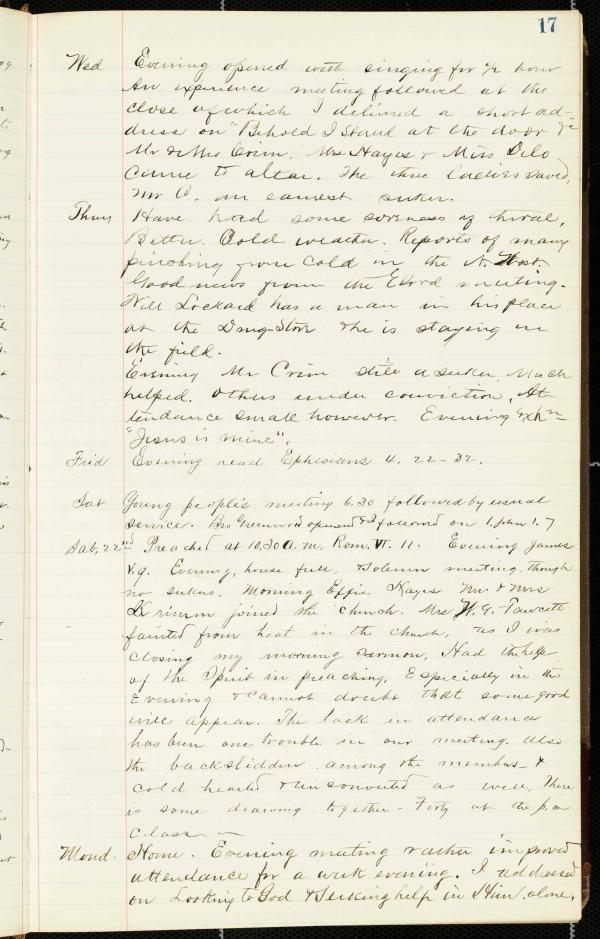 17
Wed Evening opened with singing for 1/2 hour
An experience meeting followed at the
close of which I delivered a short ad-
dress on "Behold I stand at the door &c"
Mr & Mrs Crim. Mrs Hayes & Miss Delo
came to altar. The three ladies saved,
Mr C. an earnest seeker.
Thurs Have had some soreness of throat,
Better. Cold weather. Reports of many
perishing from cold in the N. West.
Good news from the meeting.
Will Lockard has a man in his place
at the Drug-Store & he is staying in
the field.
Evening Mr Crim still a seeker. Much
helped. Others under conviction. At-
tendance small however. Evening Exhn=
"Jesus is mine".
Frid Evening read Ephesians 4. 22-32.
Sat Young people's meeting 6.30 followed by usual
service. Bro Greenwood opened & I followed on 1. John 1.7
Sab. 22nd Preached at 10.30 a.m. Rom. VI. 11. Evening James
4.9. Evening, house full, & solemn meeting, though
no seekers. Morning Effie Hayes Mr. & Mrs
Krimm joined the church. Mrs W. G. Fawcett
fainted from heat in the church, as I was
closing my morning sermon. Had the help
of the Spirit in preaching. Especially in the
Evening & cannot doubt that some good
will appear. The lack in attendance
has been one trouble in our meeting. Also
the backslidden among the members - &
cold hearted & unconverted as well, There
is some drawing together - Forty at the p.m
Class -
Mond. Home. Evening meeting rather improved
attendance for a week evening. I addressed
on Looking to God & Seeking help in Him, alone,